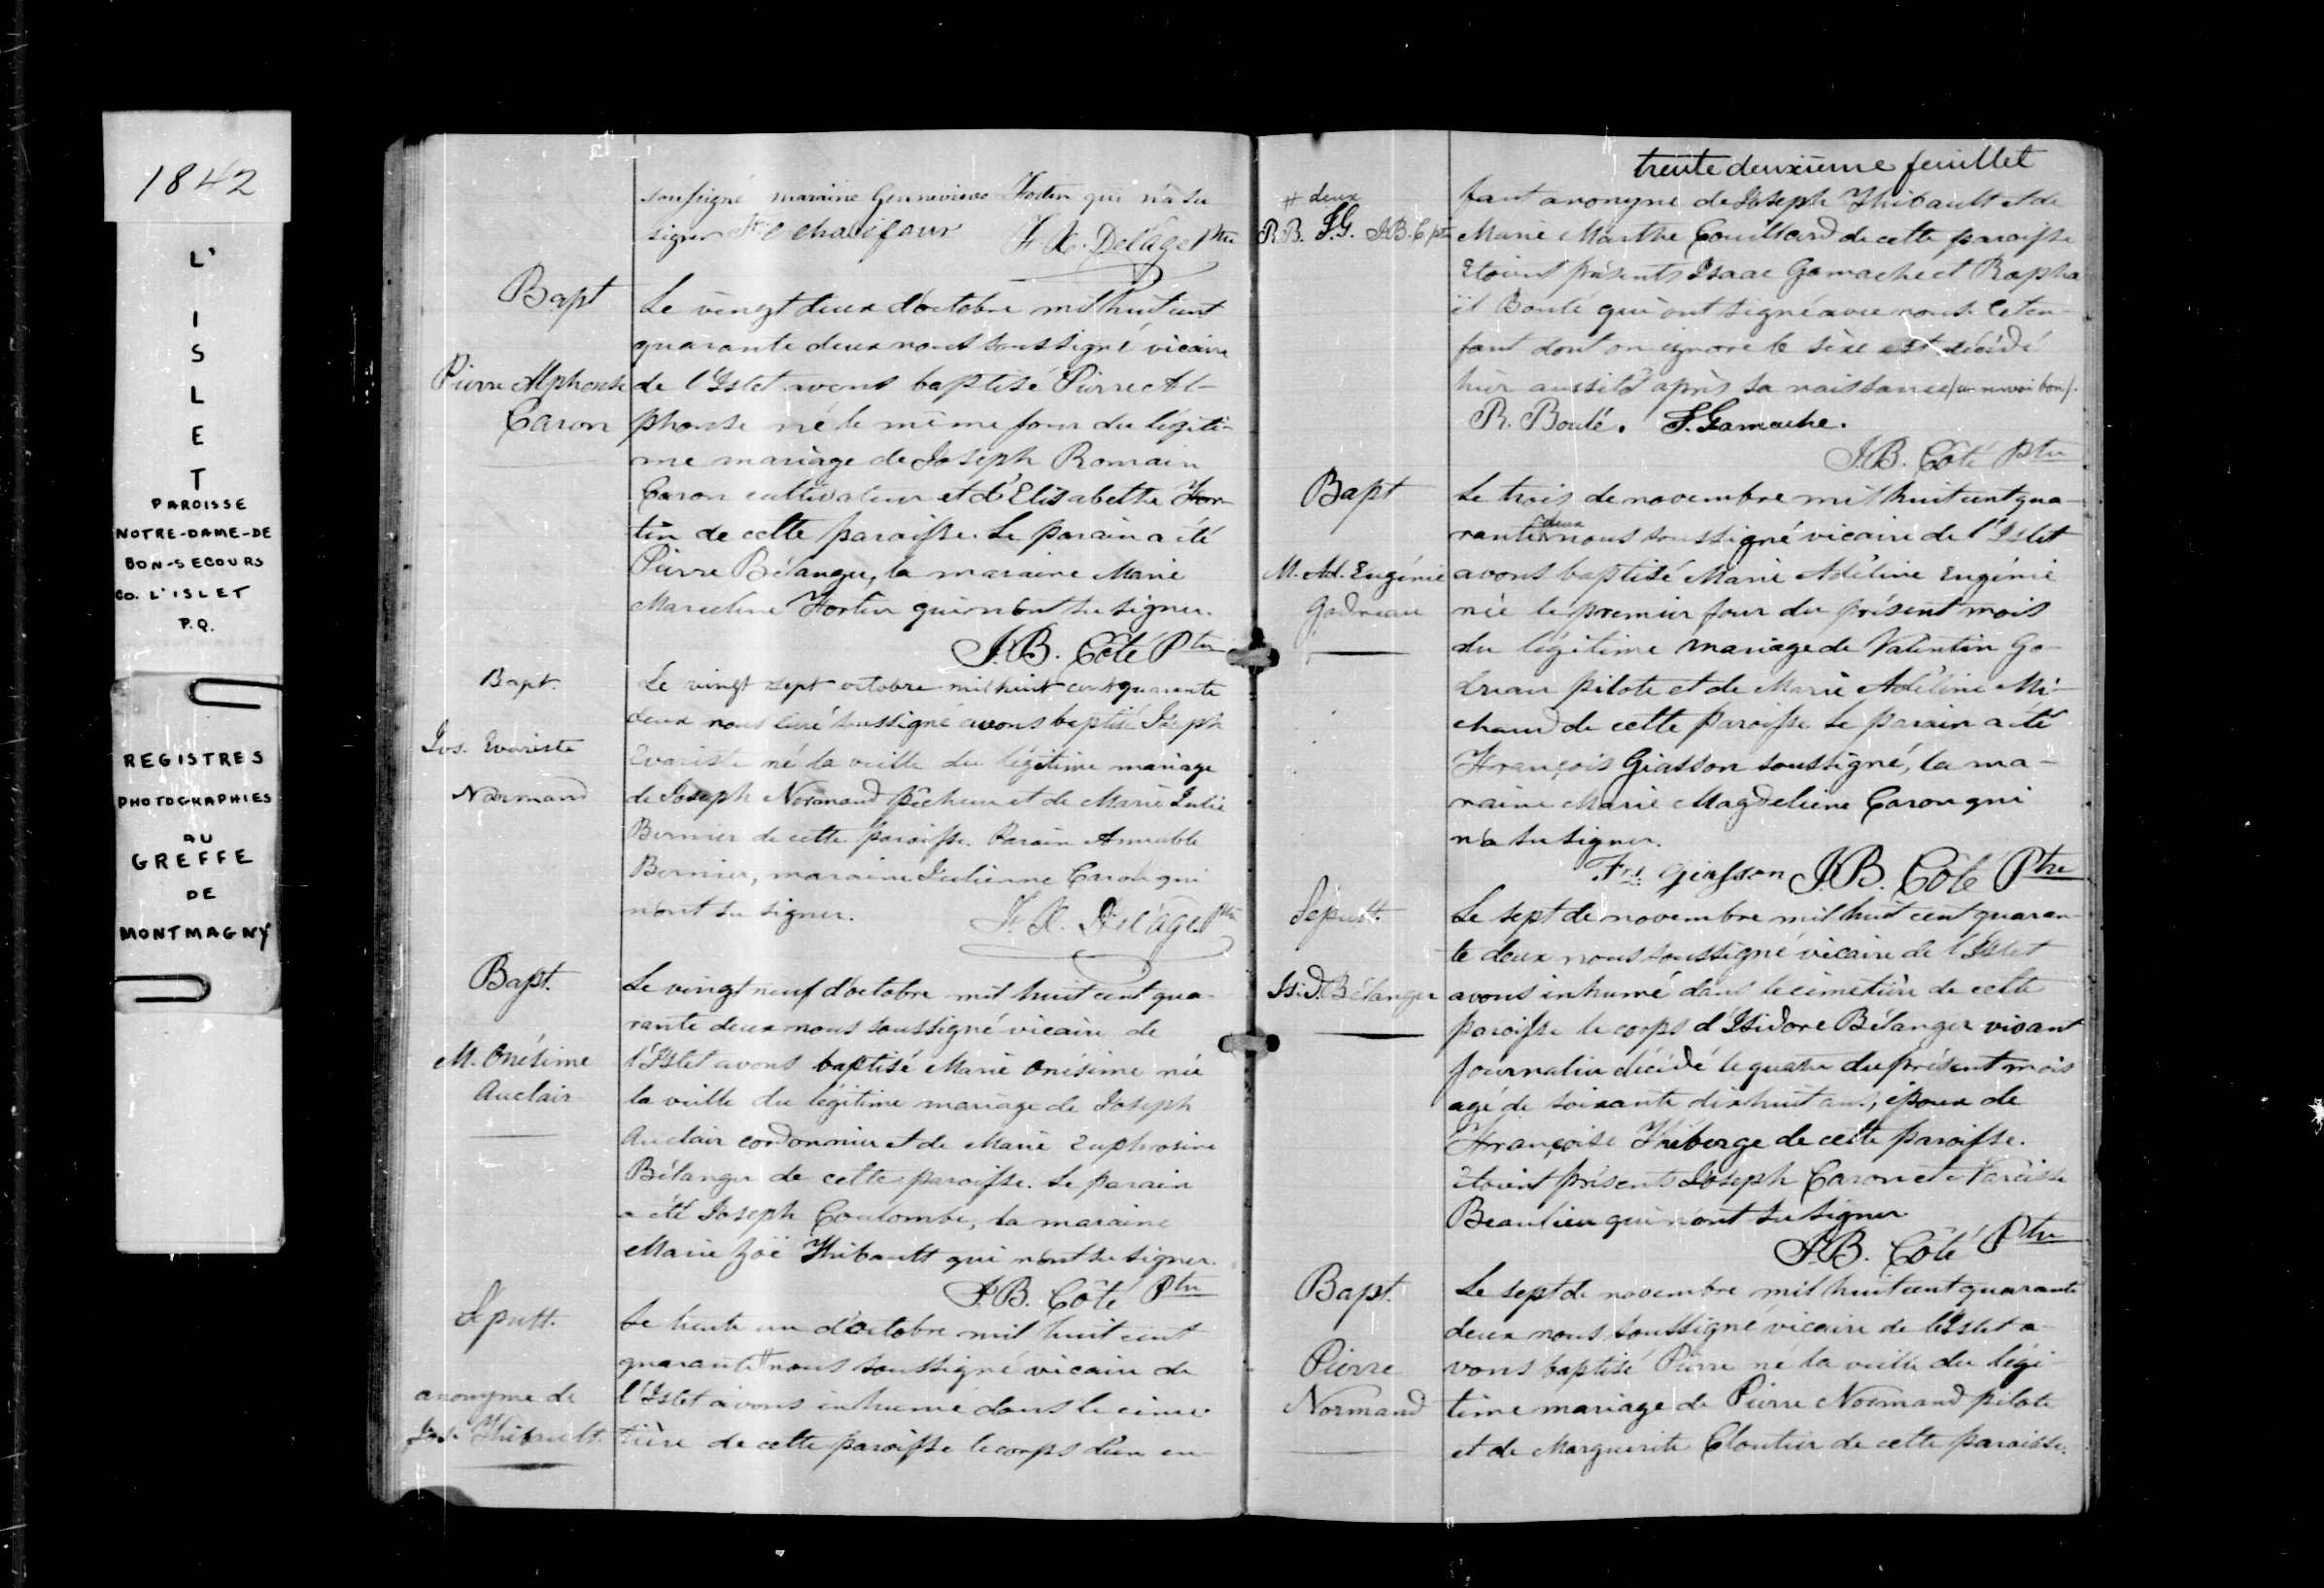 1842
L'
I
S
L
E
T
PAROISSE
NOTRE-DAME-DE
BON-SECOURS
CO. L'ISLET
P.Q.
REGISTRES
PHOTOGRAPHIES
AU
GREFFE
DE
MONTMAGNY
soussigné maraine Genevieve Fortin qui n'a su
signer F. X. Delâge Ptre
Bapt
Pierre Alphonse
Caron
Le vingt deux d'octobre mil huit cent
quarante deux nous soussigné vicaire
de l'Islet avons baptisé Pierre Al-
phonse né le même jour du légiti-
me mariage de Joseph Romain
Caron cultivateur et d'Elisabethe For-
tin de cette paroisse. Le parain a été
Pierre Bélanger, la maraine Marie
Marceline Fortin qui n'ont su signer.
J.B. Côté Ptre
Bapt.
Jos. Evariste
Normand
Le vingt sept octobre mil huit cent quarante
deux nous curé soussigné avons baptisé Joseph
Evariste né la veille du légitime mariage
de Joseph Normand pêcheur et de Marie Julie
Bernier de cette paroisse. Parain Amable
Bernier, maraine Julienne Caron qui
n'ont su signer. F. X. Delâge Ptre
Bapt.
M. Onésime
Auclair
Le vingt neuf d'octobre mil huit cent qua-
rante deux nous soussigné vicaire de
l'Islet avons baptisé Marie Onésime née
la veille du légitime mariage de Joseph
Auclair cordonnier et de Marie Euphrosine
Bélanger de cette paroisse. Le parain
a été Joseph Coulombe, la maraine
Marie Zoë Thibault qui n'ont su signer.
J.B. Côté Ptre
Sepult.
anonyme de
Jos. Thibault.
Le trente un d'octobre mil huit cent
quarante # nous soussigné vicaire de
l'Islet avons inhumé dans le cime-
tière de cette paroisse le corps d'un en-
trente deuxieme feuillet
# deux
R.B. I.G. J.B.C ptr
fant anonyme de Joseph Thibault et de
Marie Marthe Couillard de cette paroisse
Etoient présents Isaac Gamache et Rapha
ël Boulé qui ont signé avec nous. Cet en-
fant dont on ignore le sèxe est décédé
hier aussitôt après sa naissance (un renvoi bon).
R. Boulé. I. Gamache.
J.B. Côté Ptre
Bapt
M. Ad. Eugénie
Godreau
Le trois de novembre mil huit cent qua-
rante deux nous soussigné vicaire de l'Islet
avons baptisé Marie Adéline Eugénie
née le premier jour du présent mois
du légitime mariage de Valentin Go-
dreau pilote et de Marie Adéline Mi-
chaud de cette paroisse Le parain a été
François Giasson soussigné, la ma-
raine Marie Magdeleine Caron qui
n'a su signer.
Frs Giasson J.B. Côté Ptre
Sepult.
Isid. Bélanger
Le sept de novembre mil huit cent quaran-
te deux nous soussigné vicaire de l'Islet
avons inhumé dans le cimetière de cette
paroisse le corps d'Isidore Bélanger vivant
journalier décédé le quatre du présent mois
agé de soixante dix huit ans, époux de
Françoise Thiberge de cette paroisse.
Etoient présents Joseph Caron et Narcisse
Beaulieu qui n'ont su signer
J.B. Côté Ptre
Bapt.
Pierre
Normand
Le sept de novembre mil huit cent quarante
deux nous soussigné vicaire de l'Islet a-
vons baptisé Pierre né la veille du légi-
time mariage de Pierre Normand pilote
et de Marguerite Cloutier de cette paroisse.